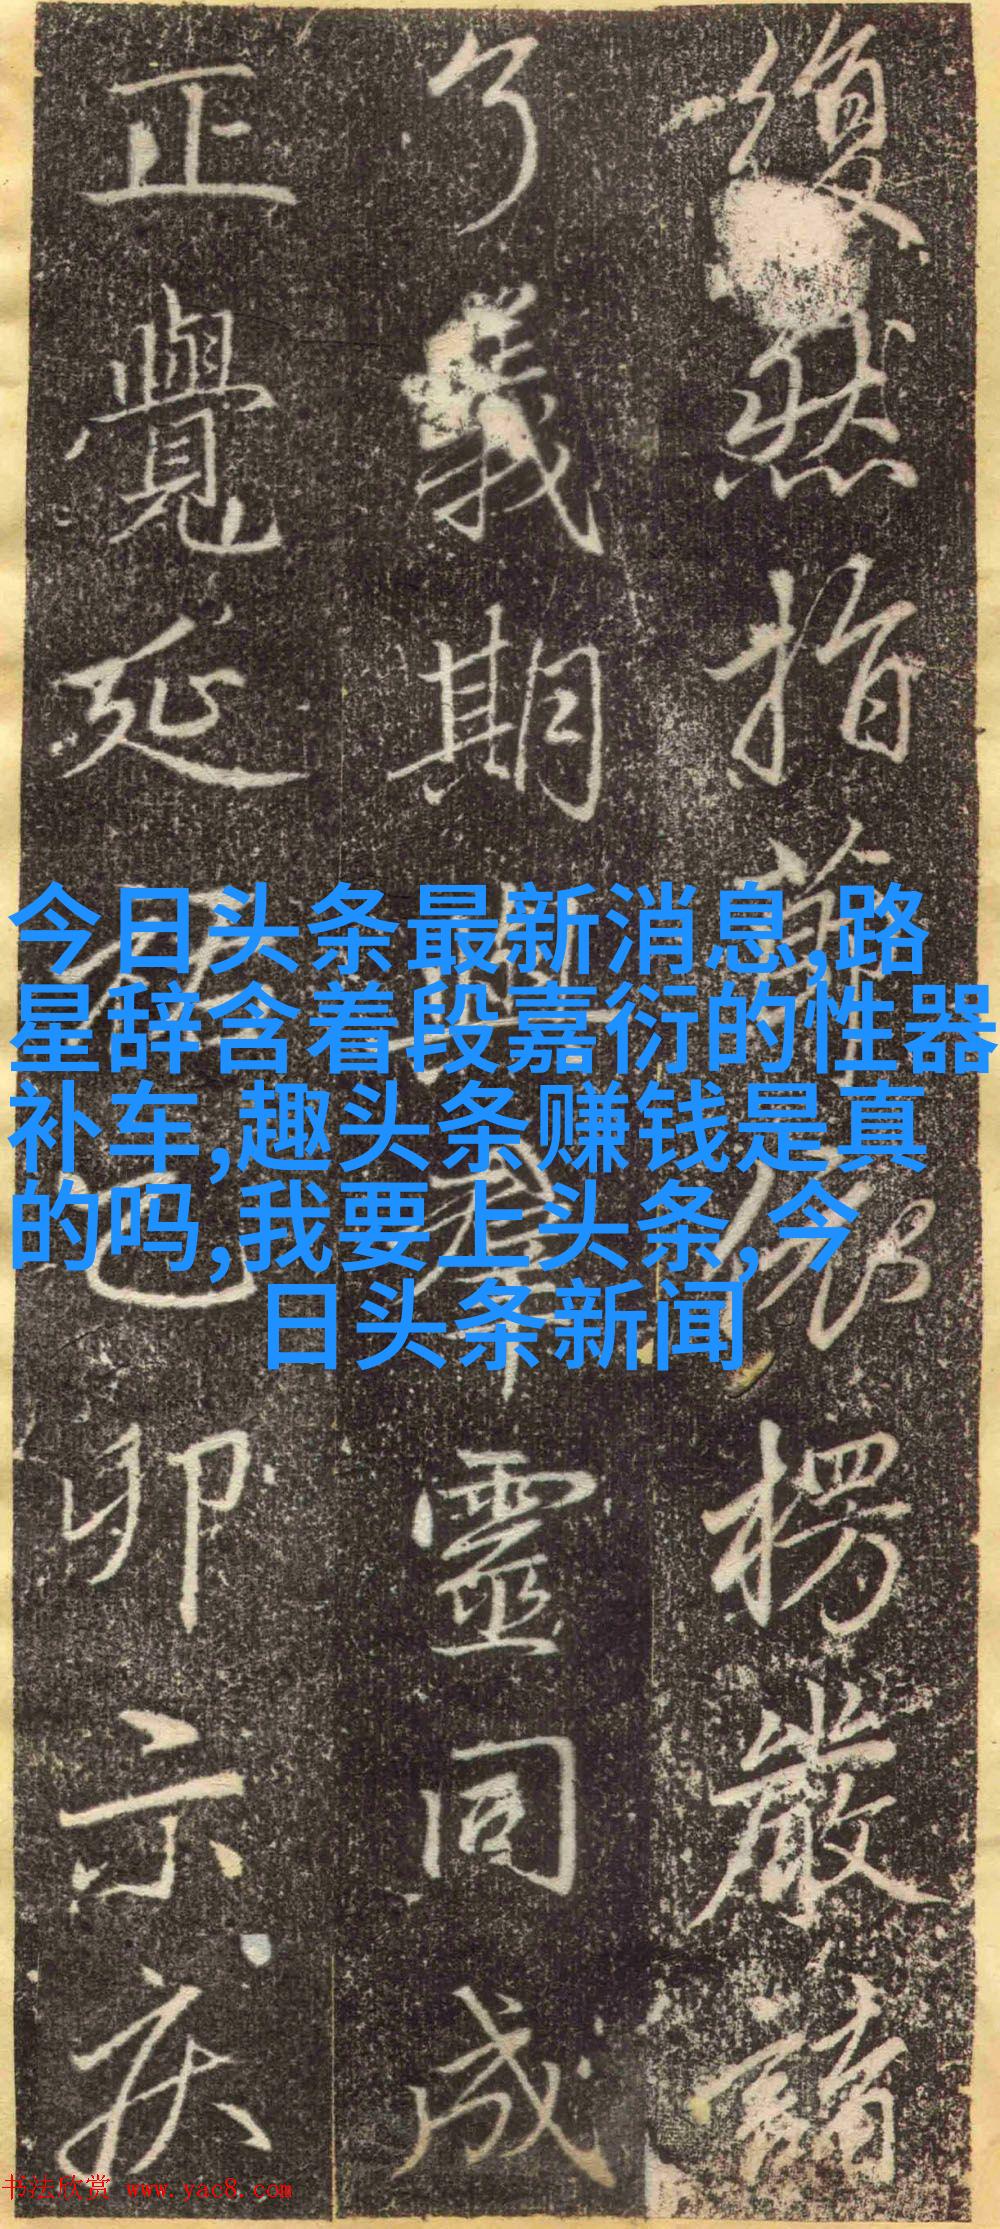 復然指楞嚴
了義期羣靈同成
正覺延卯示
今日头条最新消息,路
星辞含着段嘉衍的性器
补车,趣头条赚钱是真
的吗,我要上头条,今
日头条新闻
书法欣赏 www.yac8.com